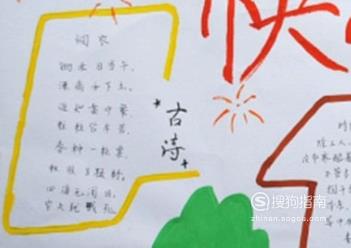 悯农
锄禾日当午,
汗滴禾下土。
谁知盘中餐,
粒粒皆辛苦。
春种一粒粟,
秋收万颗籽。
四海无闲田,
农夫犹饿死。
古诗
快
搜狗指南
zhinan.sogou.com